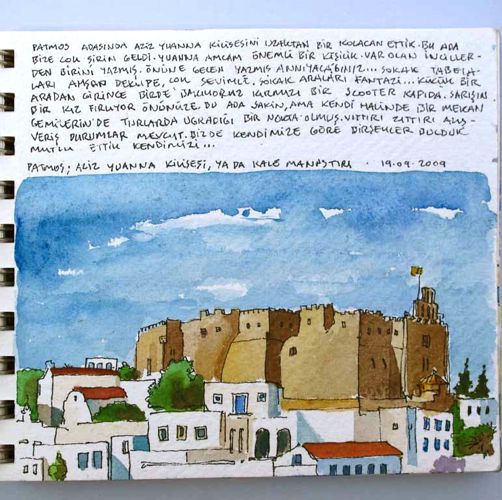 PATMOS ADASINDA AZİZ YUANNA KİLİSESİNİ UZAKTAN BİR KOLACAN ETTİK. BU ADA
BİZE ÇOK ŞİRİN GELDİ. YUANNA AMCAM ÖNEMLİ BİR KİŞİLİK. VAR OLAN İNCİLLER-
DEN BİRİNİ YAZMIŞ. ÖNÜNE GELEN YAZMIŞ ANNIYACAĞINIZ.... SOKAK TABELA-
LARI AHŞAP DEKUPE, ÇOK SEVİMLİ, SOKAK ARALARI FANTAZİ... KÜÇÜK BİR
ARADAN GİRİNCE BİRDE BAKIYORUZ KIRMIZI BİR SCOOTER KAPIDA. SARIŞIN
BİR KIZ FIRLIYOR ÖNÜNÜZE. BU ADA SAKİN, AMA KENDİ HALİNDE BİR MEKAN
GEMİLERİN'DE TURLARDA UĞRADIĞI BİR NOKTA OLMUŞ. VITTIRI ZITTIRI ALIŞ-
VERİŞ DURUMLAR MEVCUT. BİZDE KENDİMİZE GÖRE BİRŞEYLER BULDUK
MUTLU ETTİK KENDİMİZİ...
PATMOS; AZİZ YUANNA KİLİSESİ, YA DA KALE MANASTIRI . 19.09.2009